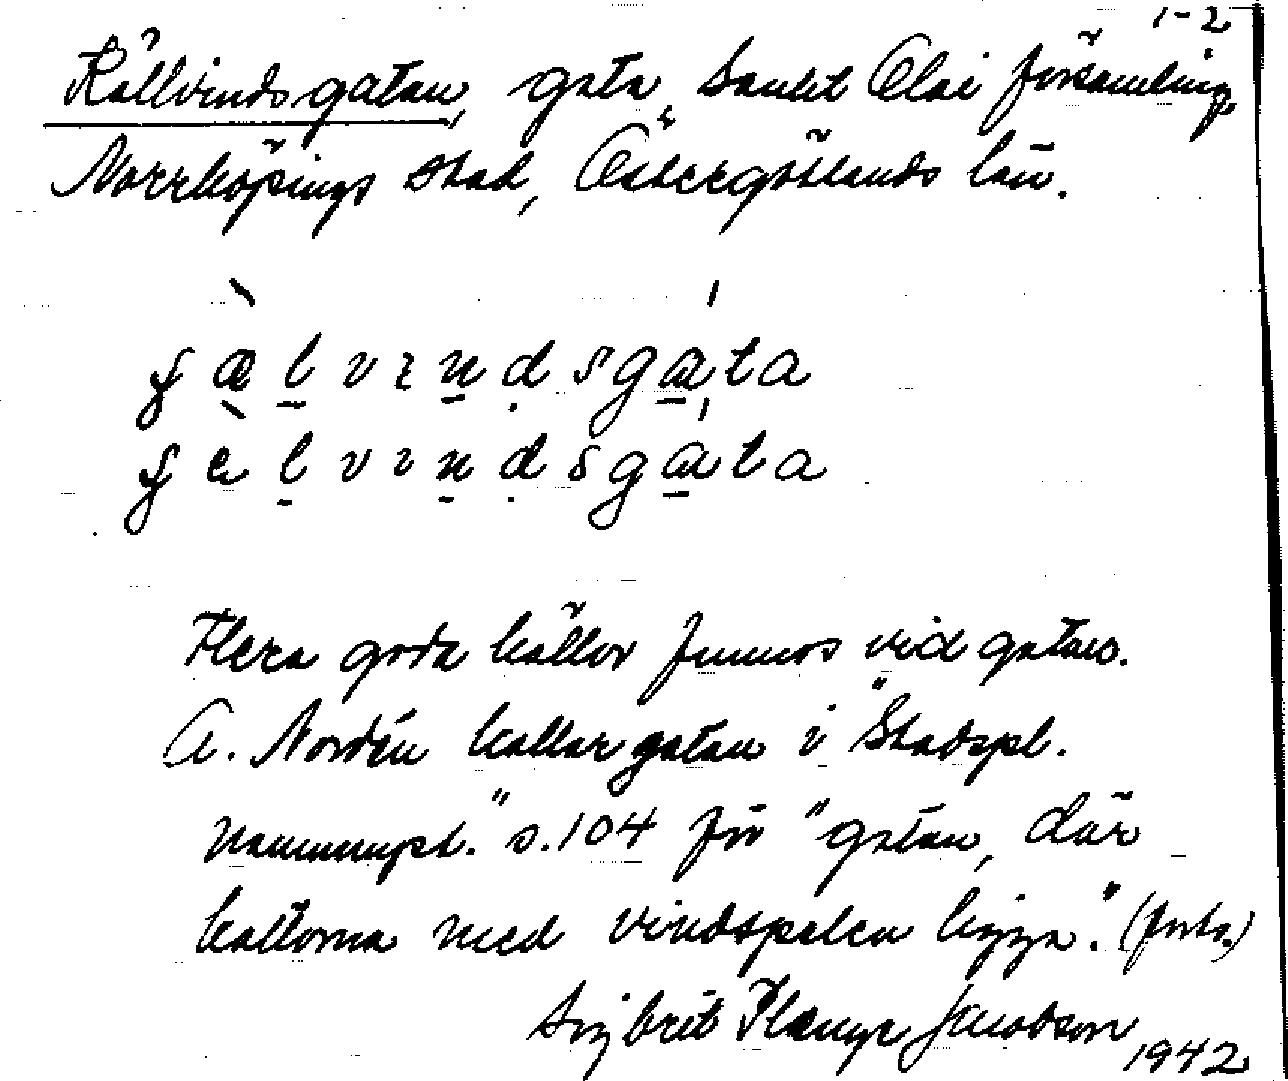 1-2
Källvindsgatan, gata, Sankt Olai församling,
Norrköpings stad, Östergötlands län.
ʃæ̀lvɪndsgáta
ʃèlvɪndsgáta
Flera goda källor funnos vid gatan.
A. Nordén kallar gatan i "Stadspl.
namnuppl." s. 104 för "gatan, där
källorna med vindspelen ligga." (forts.)
Sigbrit Plænge Jacobson
1942